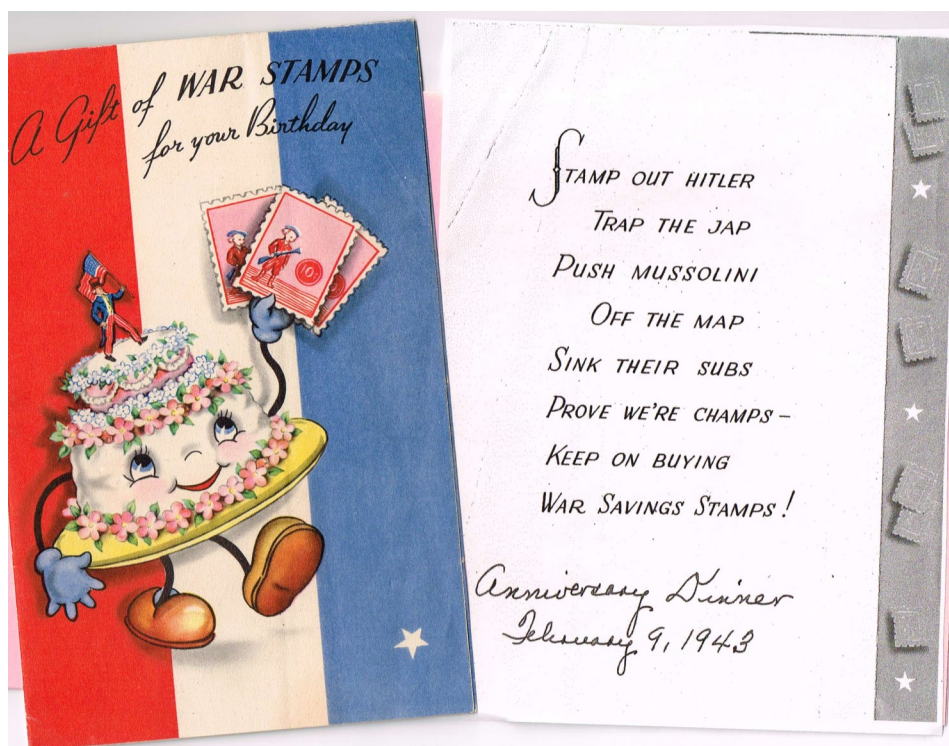 A Gift of WAR STAMPS
for your Birthday
10¢
STAMP OUT HITLER
TRAP THE JAP
PUSH MUSSOLINI
OFF THE MAP
SINK THEIR SUBS
PROVE WE'RE CHAMPS –
KEEP ON BUYING
WAR SAVINGS STAMPS!
Anniversary Dinner
February 9, 1943